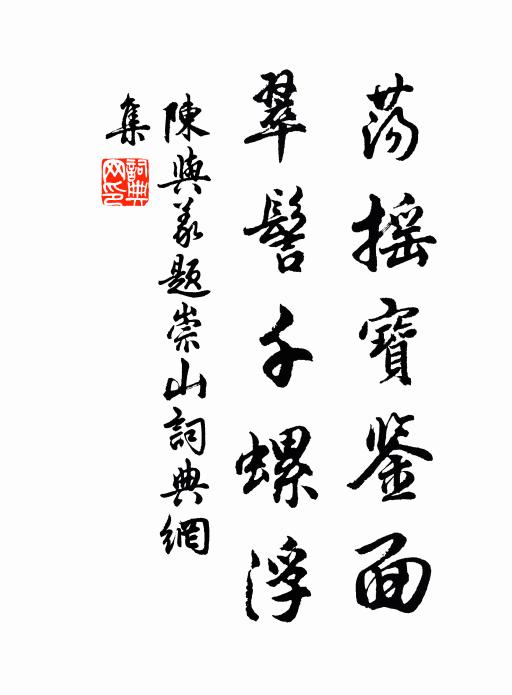 荡摇寶鉴面
翠髻千螺浮
陳與義題崇山詞典網
集
詞典網印